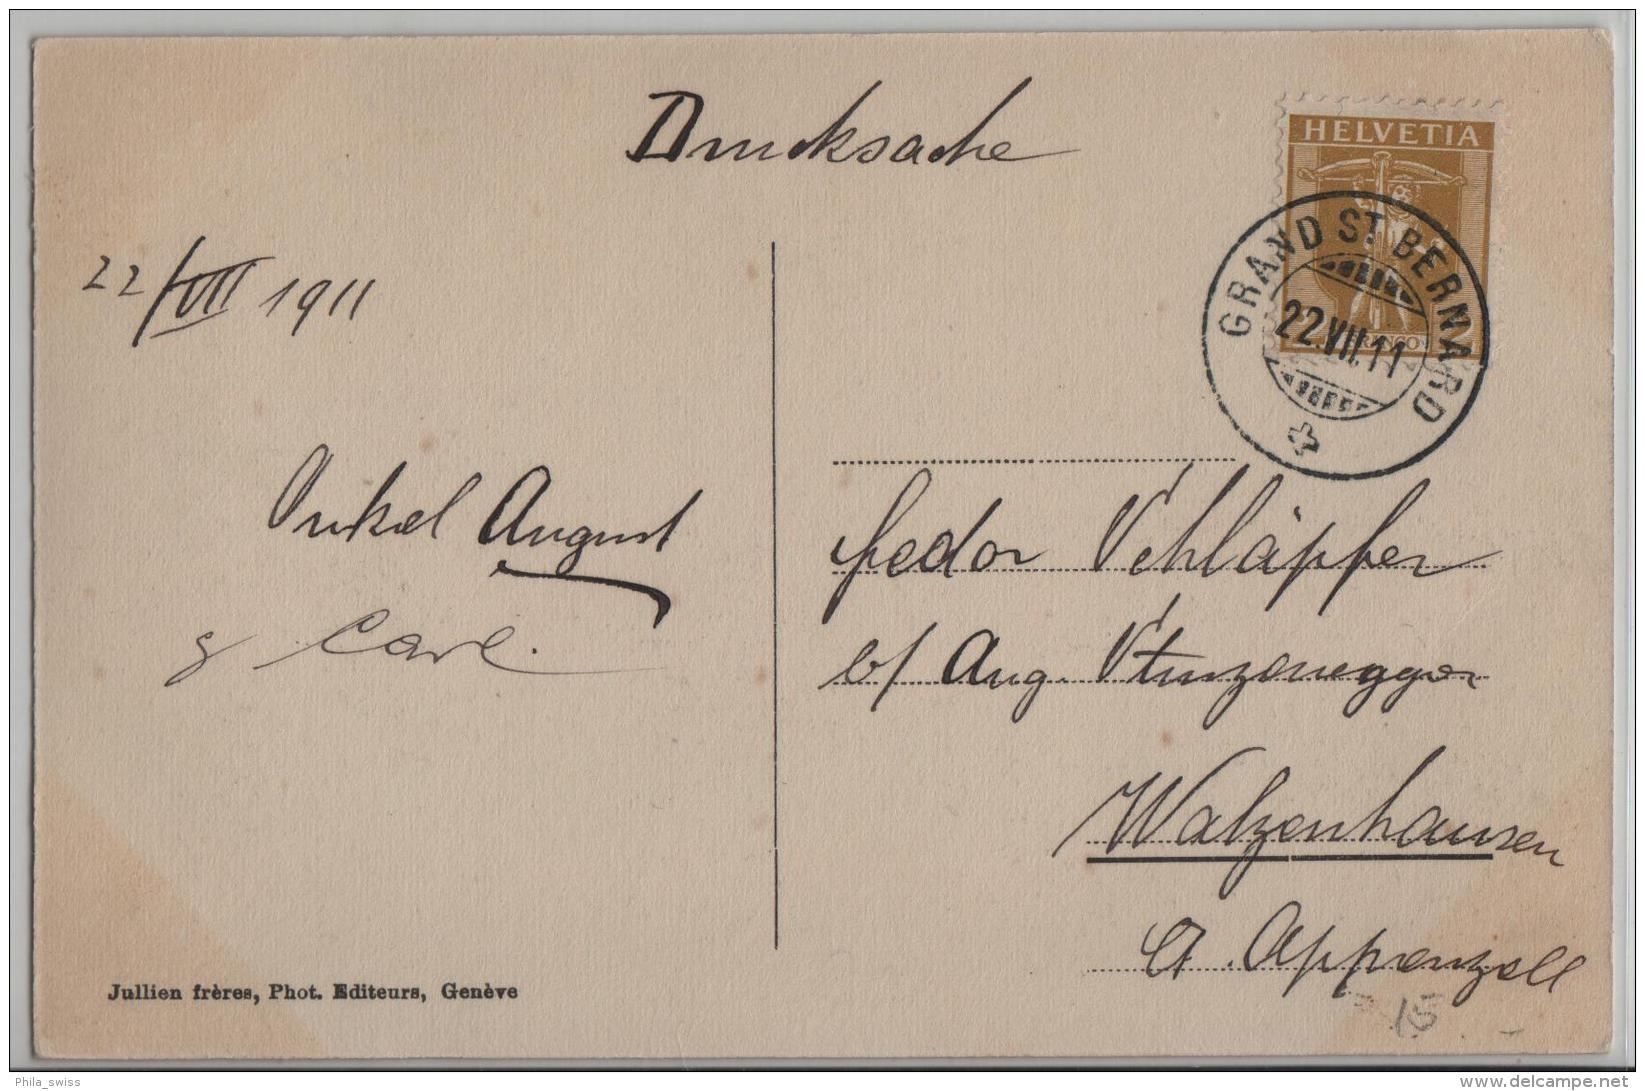 Drucksache
HELVETIA
FRANCO
GRAND ST BERNARD
22.VII.11
22/VII 1911
Onkel August
& Carl.
Fedor Schläpfer
b/ Aug. Sturzenegger
Walzenhausen
Ct. Appenzell
15
Jullien frères, Phot. Editeurs, Genève
Phila_swiss
delcampe.net